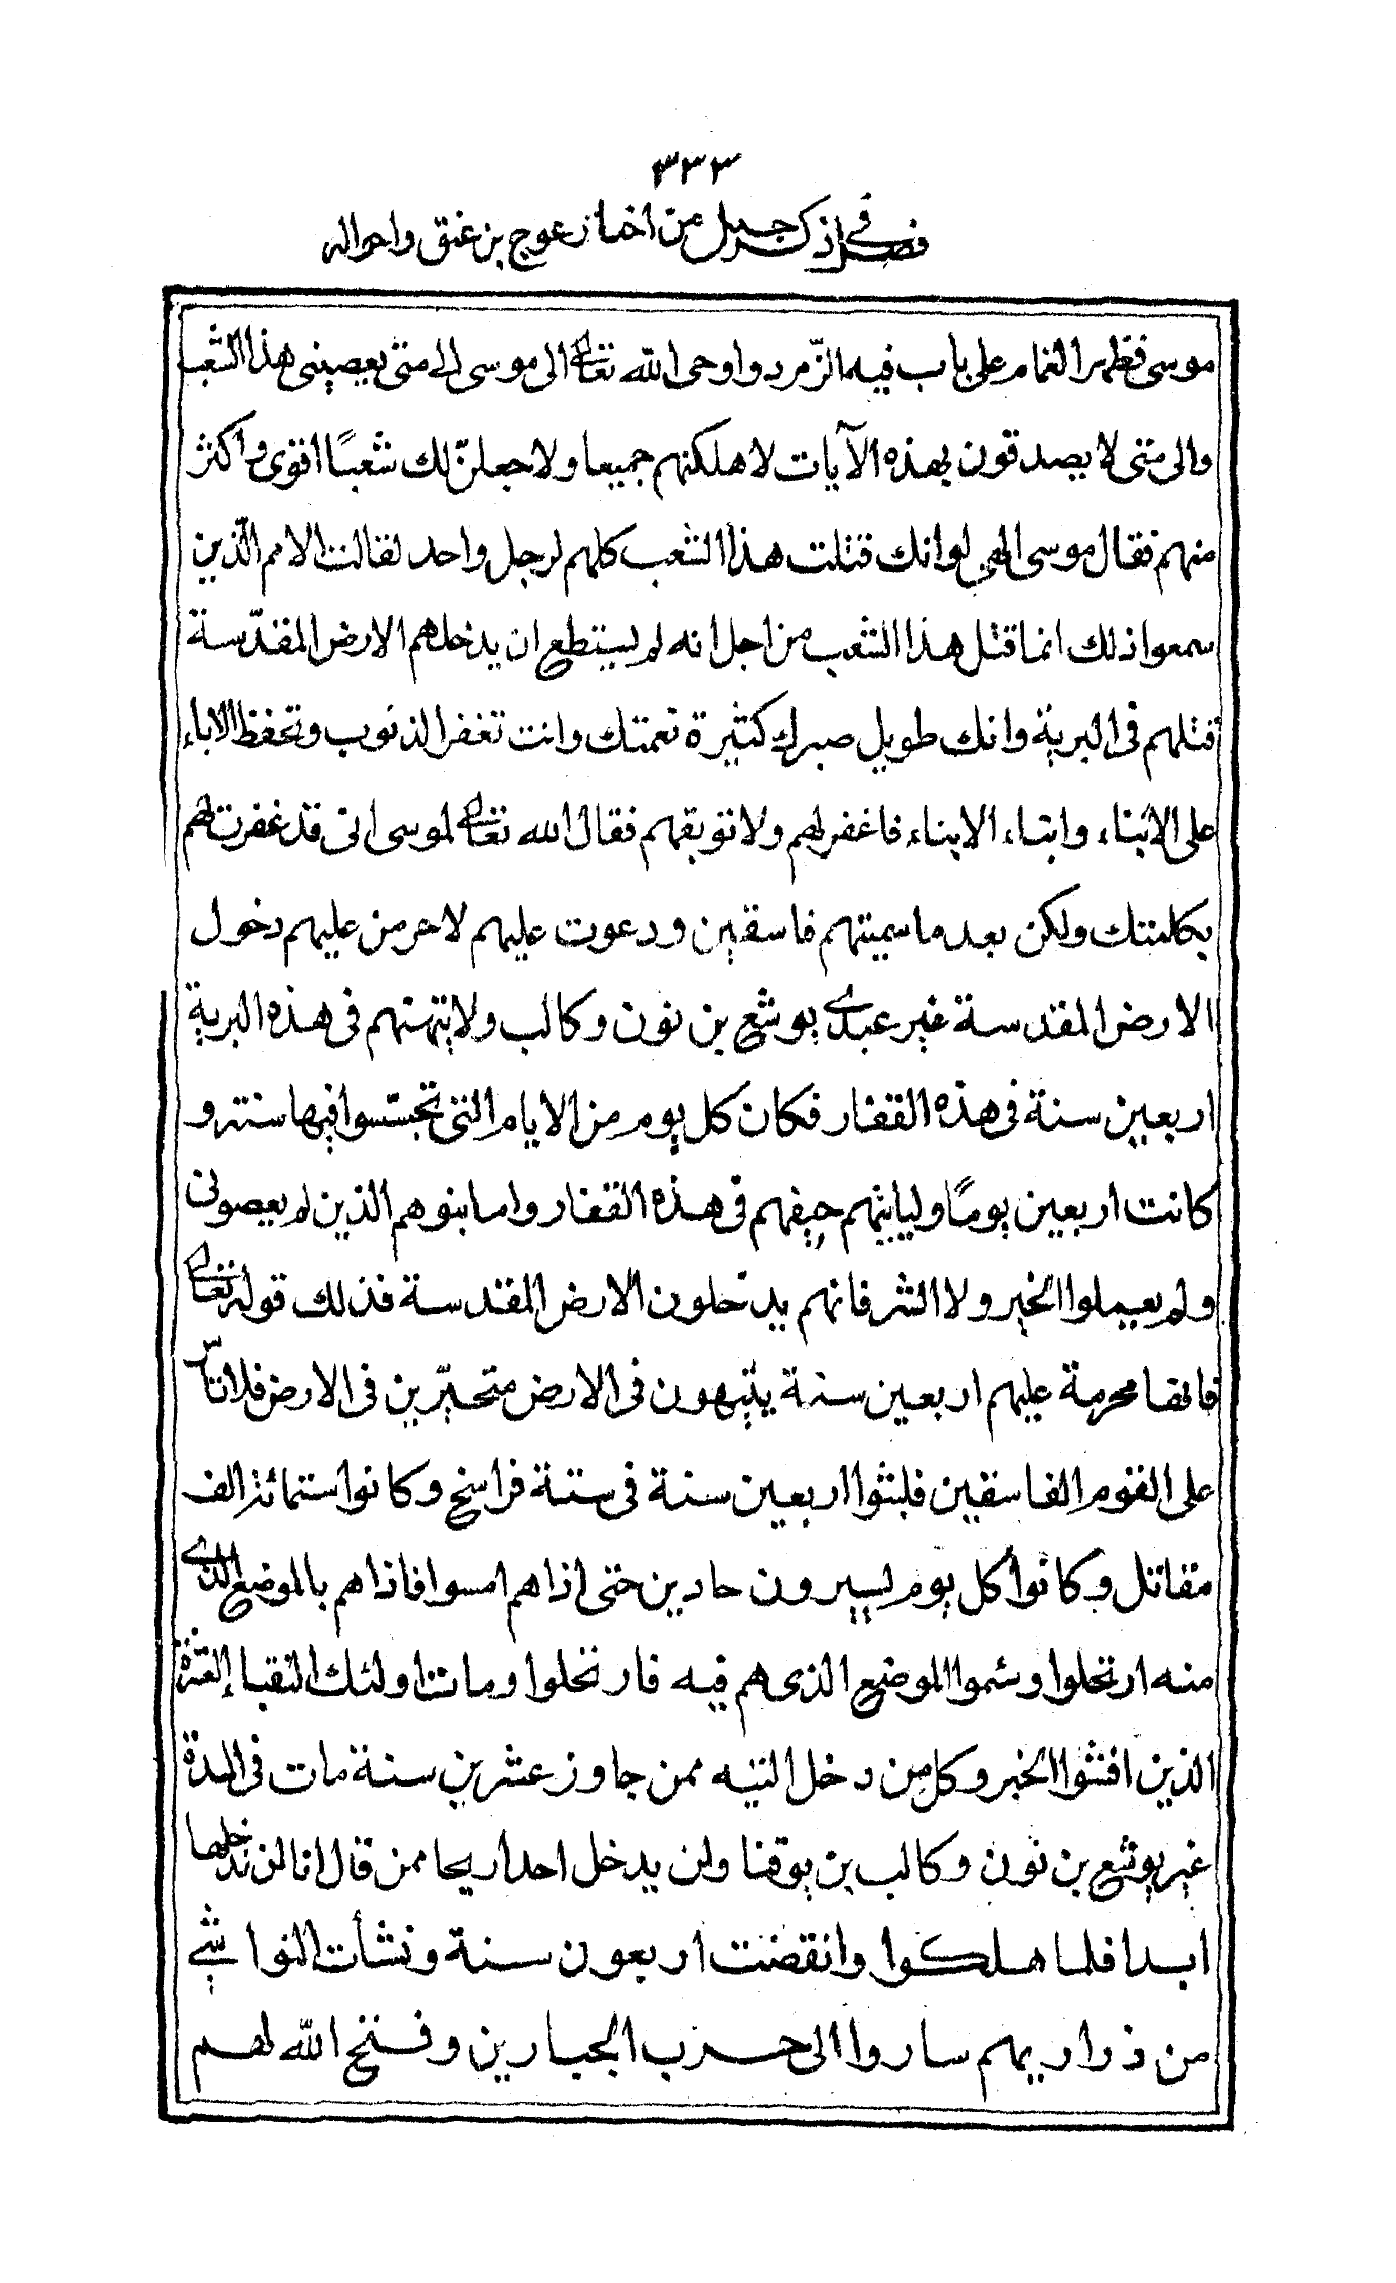 ٣٣٣
فصل في ذكر جمل من اخبار عوج بن عنق واحواله
موسى فظهر الغمام على باب فيه الزّمرد واوحى الله تعالى الى موسى الى متى يعصينى هذا الشعب
والى متى لا يصدقون بهذه الآيات لاهلكنهم جميعا ولاجعلنّ لك شعبًا اقوى واكثر
منهم فقال موسى الهى لو انك قتلت هذا الشعب كلهم لرجل واحد لقالت الامم الّذين
سمعوا ذلك انما قتل هذا الشعب من اجل انه لم يستطع ان يدخلهم الارض المقدّسة
فتلهم فى البرية وانك طويل صبرك كثيرة نعمتك وانت تغفر الذنوب وتحفظ الاباء
على الابناء وابناء الابناء فاغفر لهم ولا توبقهم فقال الله تعالى لموسى انى قد غفرت لهم
بكلمتك ولكن بعد ما سميتهم فاسقين ودعوت عليهم لاحرمن عليهم دخول
الارض المقدسة غير عبدى يوشع بن نون وكالب ولاتيهنهم فى هذه البرية
اربعين سنة فى هذه القفار فكان كل يوم من الايام التى تجسّسوا فيها سنة و
كانت اربعين يومًا وليأتيهم جيفهم فى هذه القفار واما بنوهم الذين لم يعصونى
ولم يعملوا الخير ولا الشر فانهم يدخلون الارض المقدسة فذلك قوله تعالى
فانها محرمة عليهم اربعين سنة يتيهون فى الارض متحيّرين فى الارض فلا تأس
على القوم الفاسقين فلبثوا اربعين سنة فى ستة فراسخ وكانوا ستمائة الف
مقاتل وكانوا كل يوم يسيرون حادين حتى اذا هم امسوا فاذا هم بالموضع الذى
منه ارتحلوا وشموا الموضع الذى هم فيه فارتحلوا ومات اولئك النقباء العشرة
الذين افشوا الخبر وكل من دخل التيه ممن جاوز عشرين سنة مات فى المدة
غير يوشع بن نون وكالب بن يوقنا ولن يدخل احد اريحا ممن قال انا لن ندخلها
ابدا فلما هلكوا وانقضت اربعون سنة ونشأت النواشى
من ذراريهم ساروا الى حرب الجبارين وفتح الله لهم